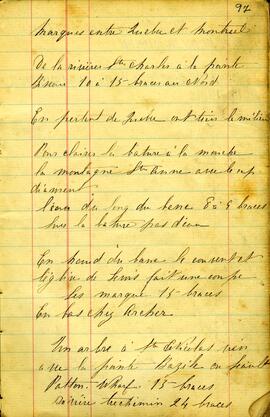 92
Marques entre Quebec et Montreal
De la rivière St Charles à la pointe
10 à 15 braces au Nord
En partent de Quebec ont tien le milieu
Pour claires la bature à la marche
la montagne St Anne avec le cap
diament
l'eau du long du banc 8 à 9 braces
Sur la bature pas d'eau
En haut du banc le couvent et
l'église de Levis fait une coupe
Les marque 15 braces
En bas chez Archer
Un arbre à St Nicolas ven
avec la pointe Bazile en haut
Patton Wharf 13 braces
rivière 24 braces